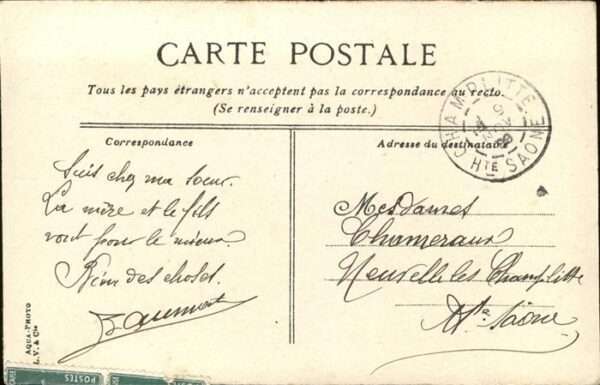 CARTE POSTALE
Tous les pays étrangers n'acceptent pas la correspondance au recto.
(Se renseigner à la poste.)
CHAMPLITTE
HTE SAONE
Correspondance
Adresse du destinataire
Suis chez ma soeur.
La mère et le fils
vont pour le mieux.
Bien des choses.
Mesdames
Chameraux
Neuvelle les Champlitte
Hte Saône
AQUA-PHOTO
L. V. & Cie
POSTES